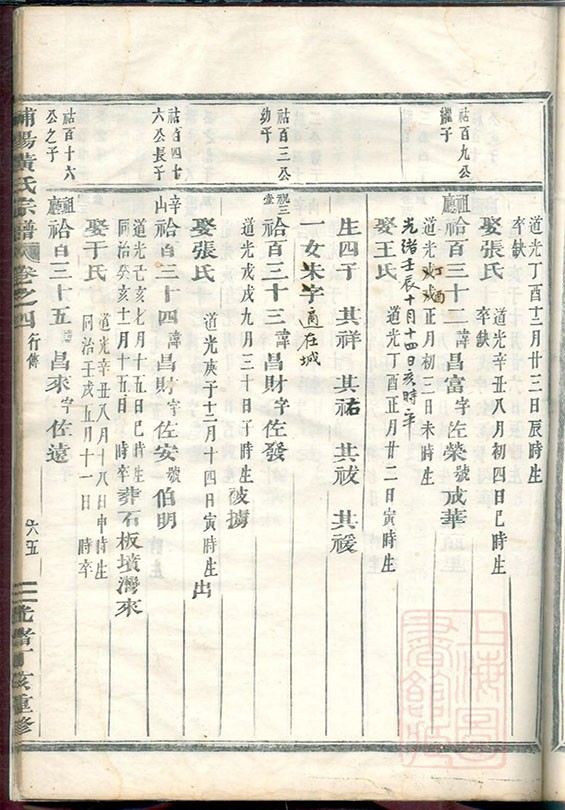 道光丁酉十二月廿三日辰時生
卒缺
娶張氏
道光辛丑八月初四日巳時生
卒缺
祜百九公
繼子
祖廳
袷百三十二諱昌富字佐榮號茂華
道光戊戌正月初三日未時生
丁酉
光绪壬辰十月十四日亥時卒
娶王氏
道光丁酉正月廿二日寅時生
生四子 其祥 其祐 其祓 其禐
一女朱字適在城
祜百三公
幼子
祝三堂
袷百三十三諱昌財字佐發
道光戊戌九月三十日子時生被擄
娶張氏
道光庚子十二月十四日寅時生出
祜百四十
六公長子
辛山
袷百三十四諱昌財字佐安號伯明
道光己亥七月十五日巳時生
同治癸亥十二月十五日 時卒
葬石板墳灣來
娶于氏
道光辛丑八月十八日申時生
同治壬戌五月十一日 時卒
祜百十六
公之子
祖廳
袷百三十五諱昌來字佐遠
浦陽黃氏宗譜 卷之四 行傳
六五
光緒丁亥重修
上海圖書館藏